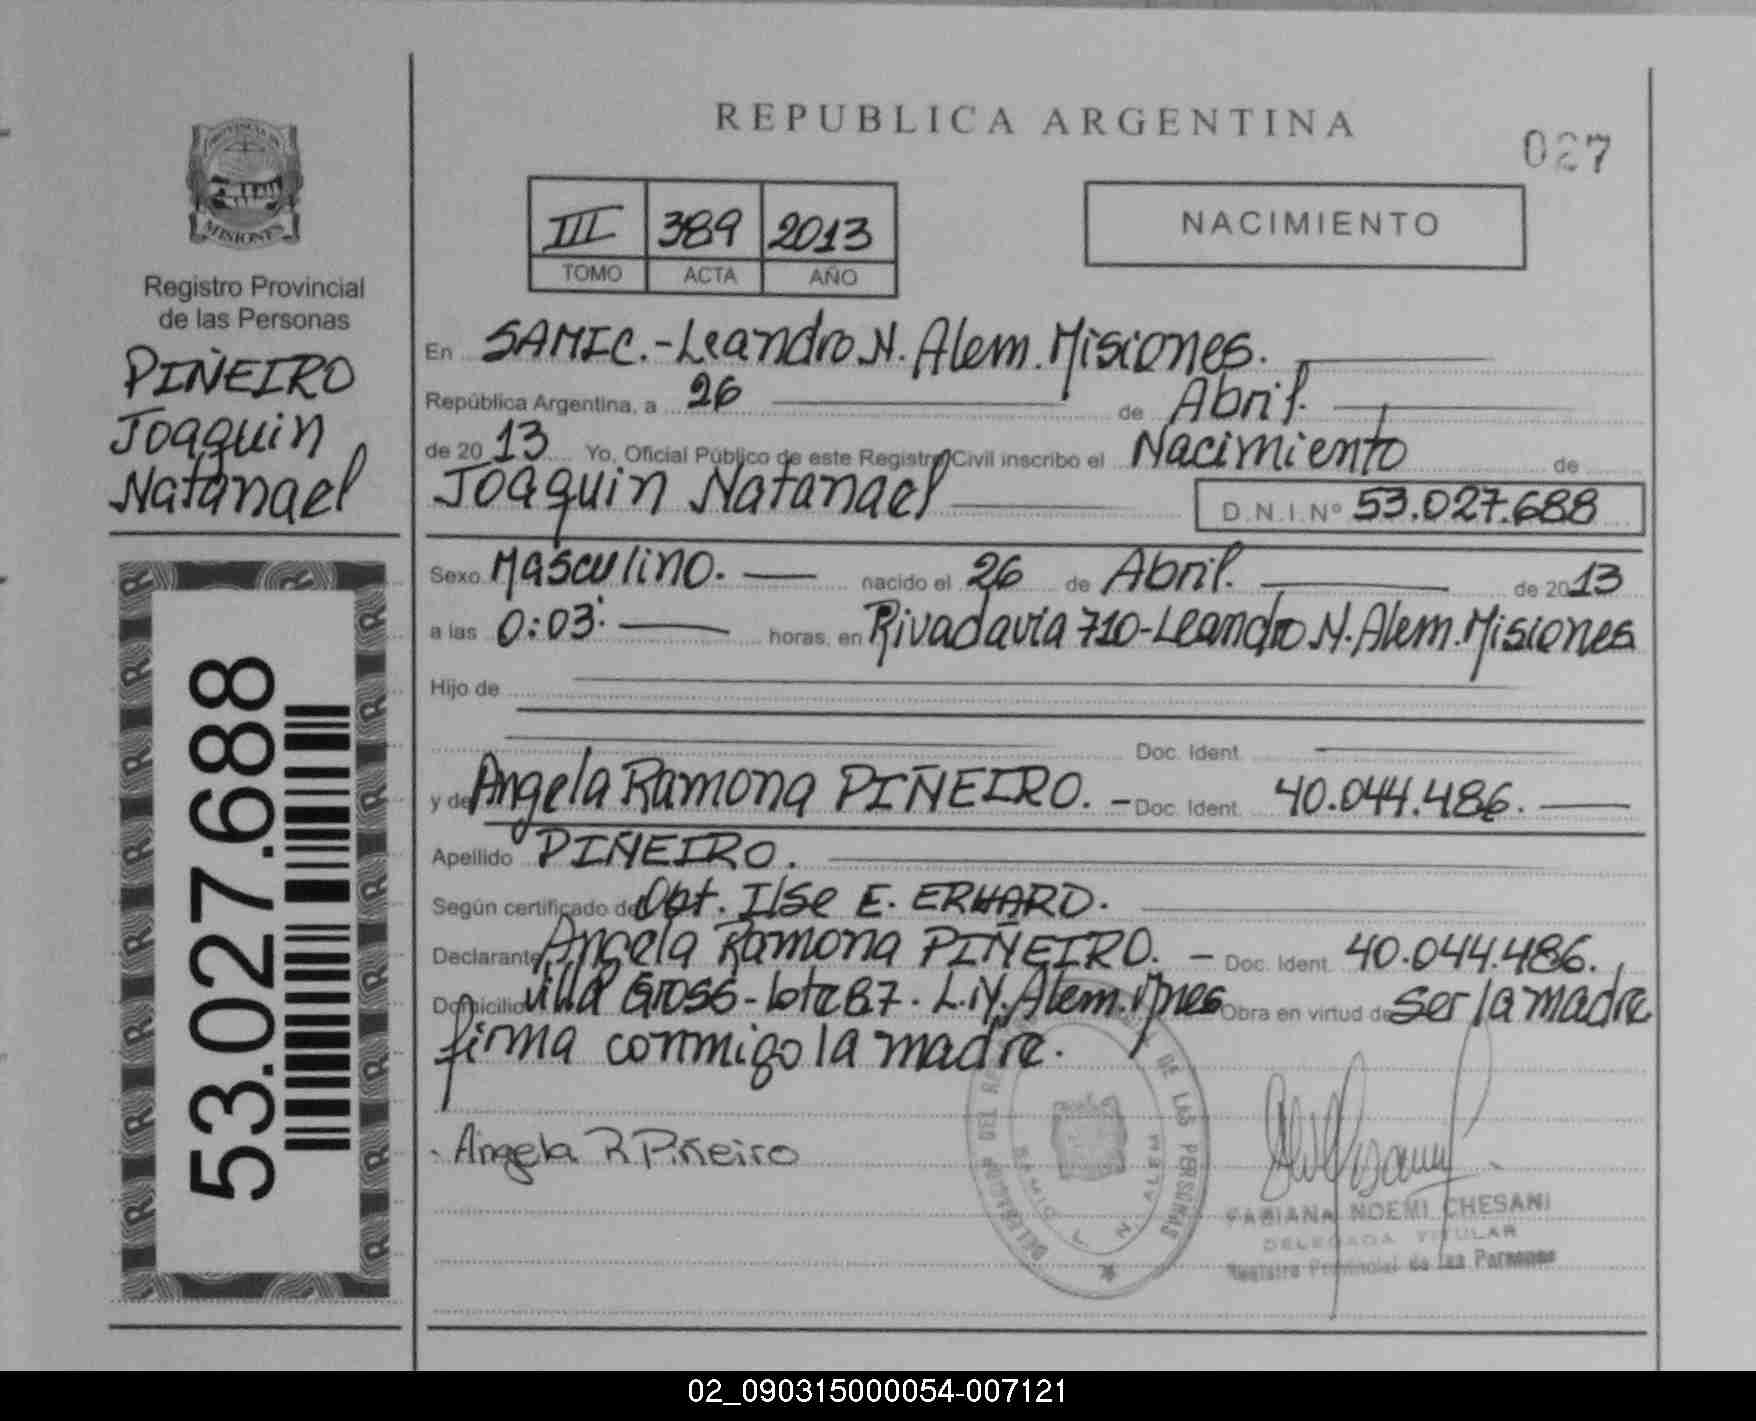 REPUBLICA ARGENTINA
027
PROVINCIA DE
MISIONES
Registro Provincial
de las Personas
PIÑEIRO
Joaquin
Natanael
53.027.688
III 389 2013
TOMO ACTA AÑO
NACIMIENTO
En SAMIC.-Leandro N. Alem. Misiones.
República Argentina, a 26 de Abril.
de 2013 Yo, Oficial Público de este Registro Civil inscribo el Nacimiento de
Joaquin Natanael D.N.I.Nº 53.027.688
Sexo Masculino. nacido el 26 de Abril. de 2013
a las 0:03: horas, en Rivadavia 710-Leandro N. Alem. Misiones
Hijo de
Doc. Ident.
y de Angela Ramona PIÑEIRO. - Doc. Ident. 40.044.486.
Apellido PIÑEIRO.
Según certificado de Obt. Ilse E. ERHARD.
Declarante Angela Ramona PIÑEIRO. - Doc. Ident. 40.044.486.
Domicilio Villa Gross - lote 87. L.N. Alem. Mnes Obra en virtud de ser la madre
firma conmigo la madre.
Angela R Piñeiro
DE LAS PERSONAS
SAMIC L N ALEM
FABIANA NOEMI CHESANI
DELEGADA TITULAR
Registro Provincial de las Personas
02_090315000054-007121